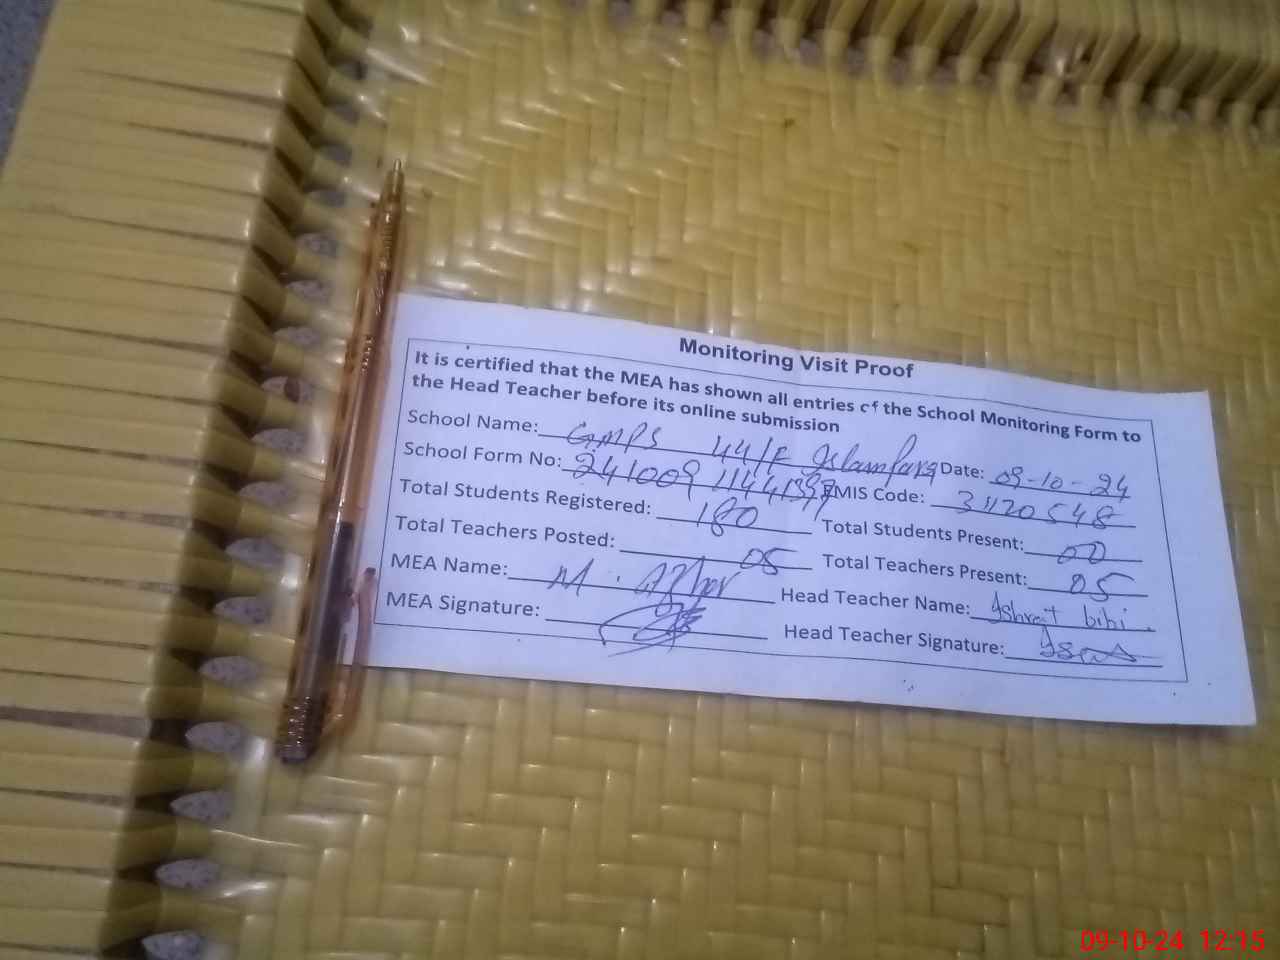 Monitoring Visit Proof
It is certified that the MEA has shown all entries of the School Monitoring Form to
the Head Teacher before its online submission
School Name: GMPS 44/F Date: 09-10-24
School Form No: EMIS Code: 31120548
Total Students Registered: 180 Total Students Present: 00
Total Teachers Posted: 05 Total Teachers Present: 05
MEA Name: M. Azhar Head Teacher Name: Yshrat bibi.
MEA Signature: Head Teacher Signature:
09-10-24 12:15